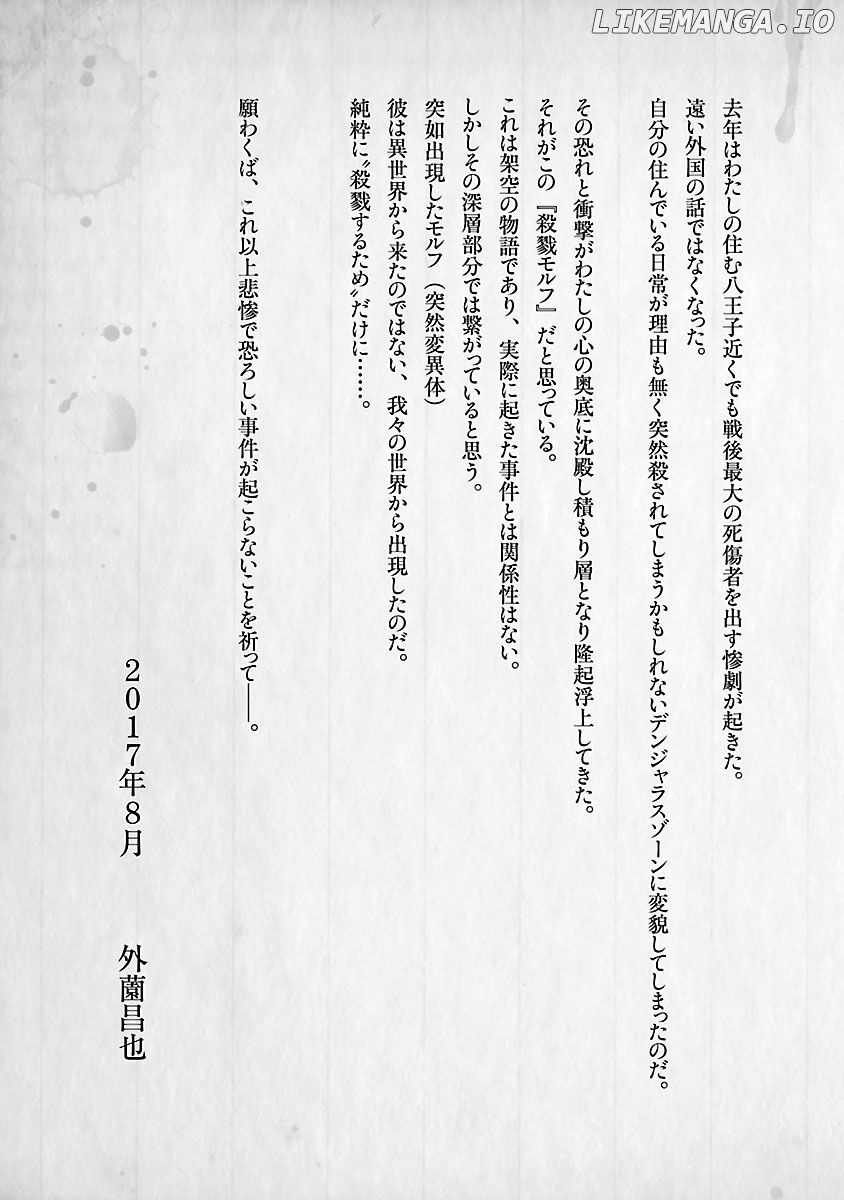 LIKEMANGA.IO
去年はわたしの住む八王子近くでも戦後最大の死傷者を出す惨劇が起きた。
遠い外国の話ではなくなった。
自分の住んでいる日常が理由も無く突然殺されてしまうかもしれないデンジャラスゾーンに変貌してしまったのだ。
その恐れと衝撃がわたしの心の奥底に沈殿し積もり層となり隆起浮上してきた。
それがこの『殺戮モルフ』だと思っている。
これは架空の物語であり、実際に起きた事件とは関係性はない。
しかしその深層部分では繋がっていると思う。
突如出現したモルフ（突然変異体）
彼は異世界から来たのではない、我々の世界から出現したのだ。
純粋に〝殺戮するため〟だけに……。
願わくば、これ以上悲惨で恐ろしい事件が起こらないことを祈って——。
2017年8月　外薗昌也